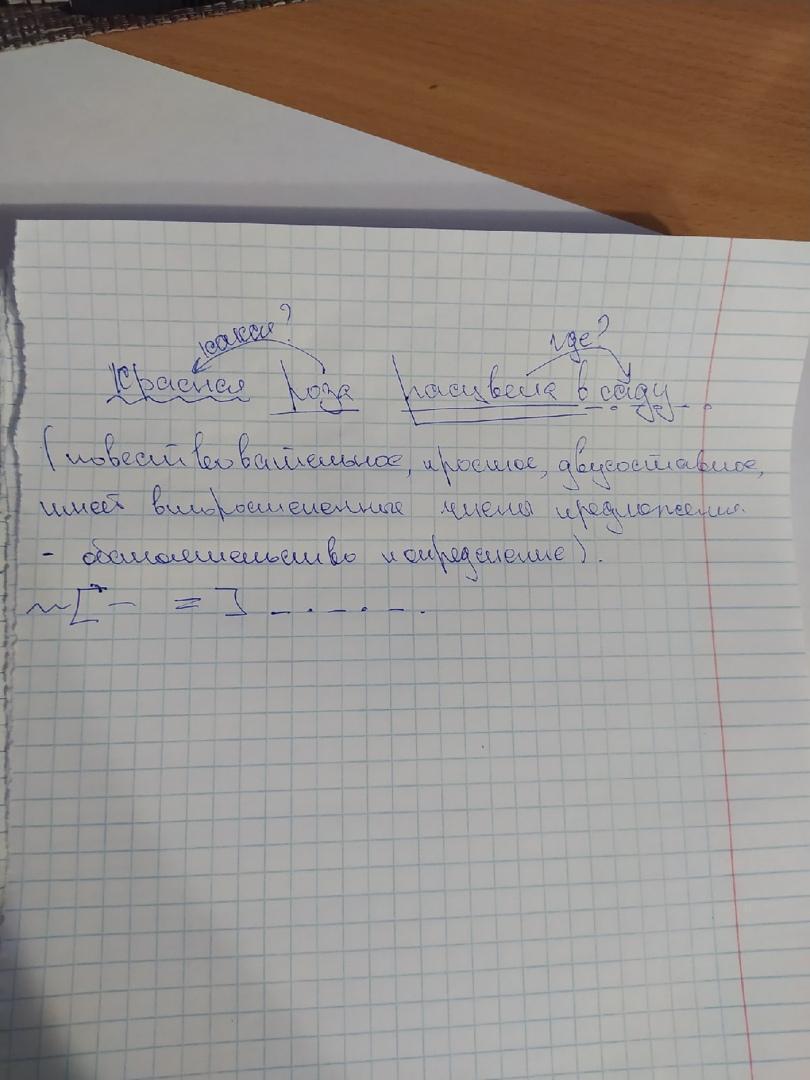 какая? где?
Красная роза расцвела в саду.
(повествовательное, простое, двусоставное,
имеет второстепенные члены предложения
- обстоятельство и определение).
~[- =] _._._.